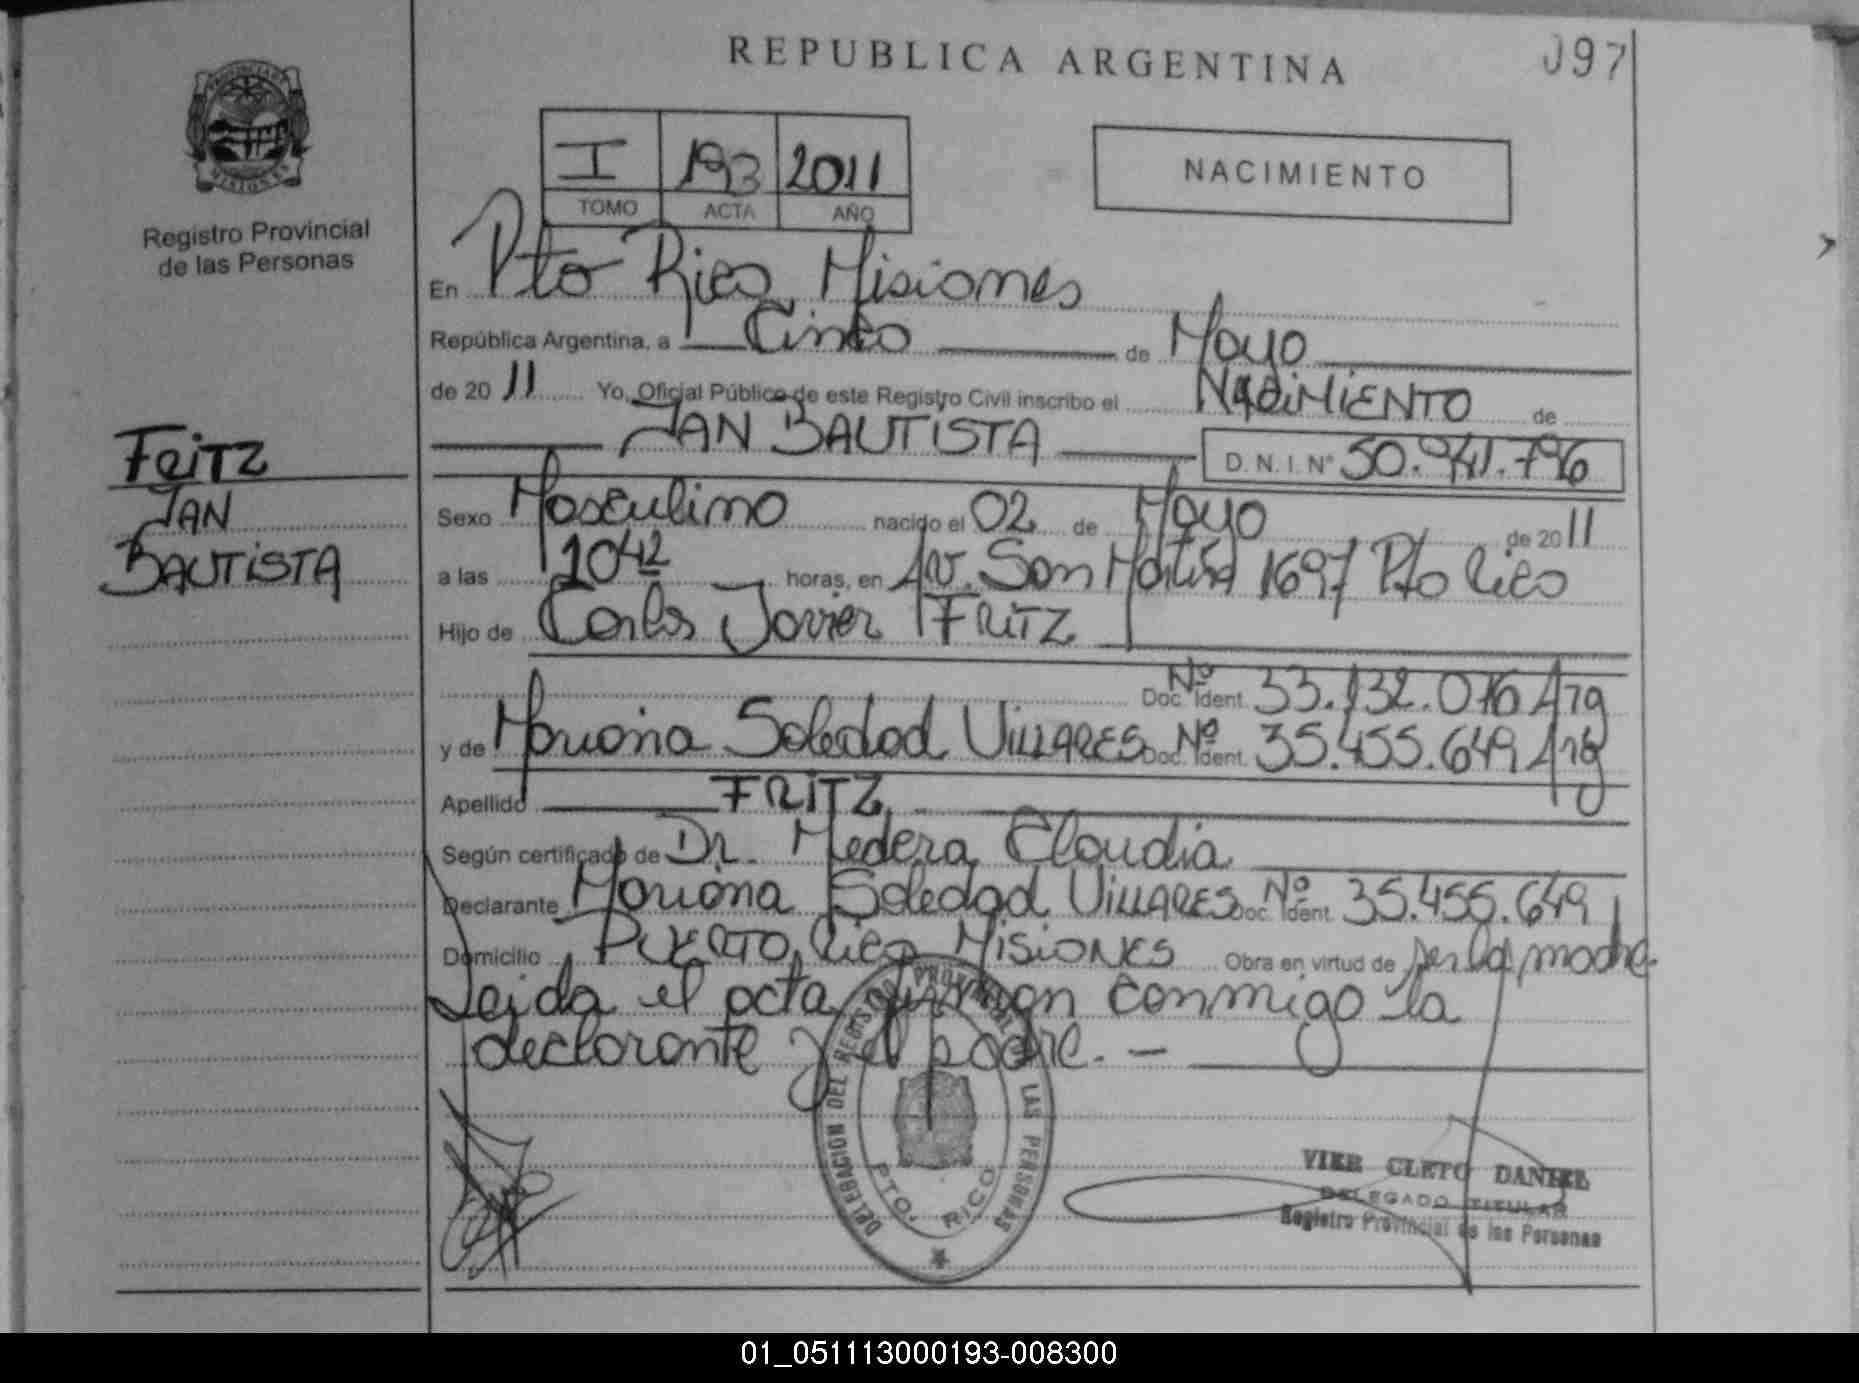 REPUBLICA ARGENTINA
097
I 193 2011
TOMO ACTA AÑO
NACIMIENTO
PROVINCIA DE MISIONES
Registro Provincial
de las Personas
En Pto Rico, Misiones
República Argentina, a Cinco de Mayo
de 2011 Yo, Oficial Público de este Registro Civil inscribo el NACIMIENTO de
JAN BAUTISTA D.N.I. Nº 50.941.796
FRITZ
JAN
BAUTISTA
Sexo Masculino nacido el 02 de Mayo de 2011
a las 1042 horas, en Av. San Martín 1697 Pto Rico
Hijo de Carlos Javier FRITZ
Nº Doc. Ident. 33.132.016 Arg
y de Mariana Soledad VILLARES Nº Doc. Ident. 35.455.649 Arg
Apellido FRITZ
Según certificado de Dr. Medera Claudia
Declarante Mariana Soledad VILLARES Nº Doc. Ident. 35.455.649
Domicilio PUERTO Rico MISIONES Obra en virtud de ser la madre.
Leida el acta firman conmigo la
declarante y el padre. —
DELEGACION DEL REGISTRO PROVINCIAL DE LAS PERSONAS
PTO. RICO
VIER CLETO DANIEL
DELEGADO TITULAR
Registro Provincial de las Personas
01_051113000193-008300